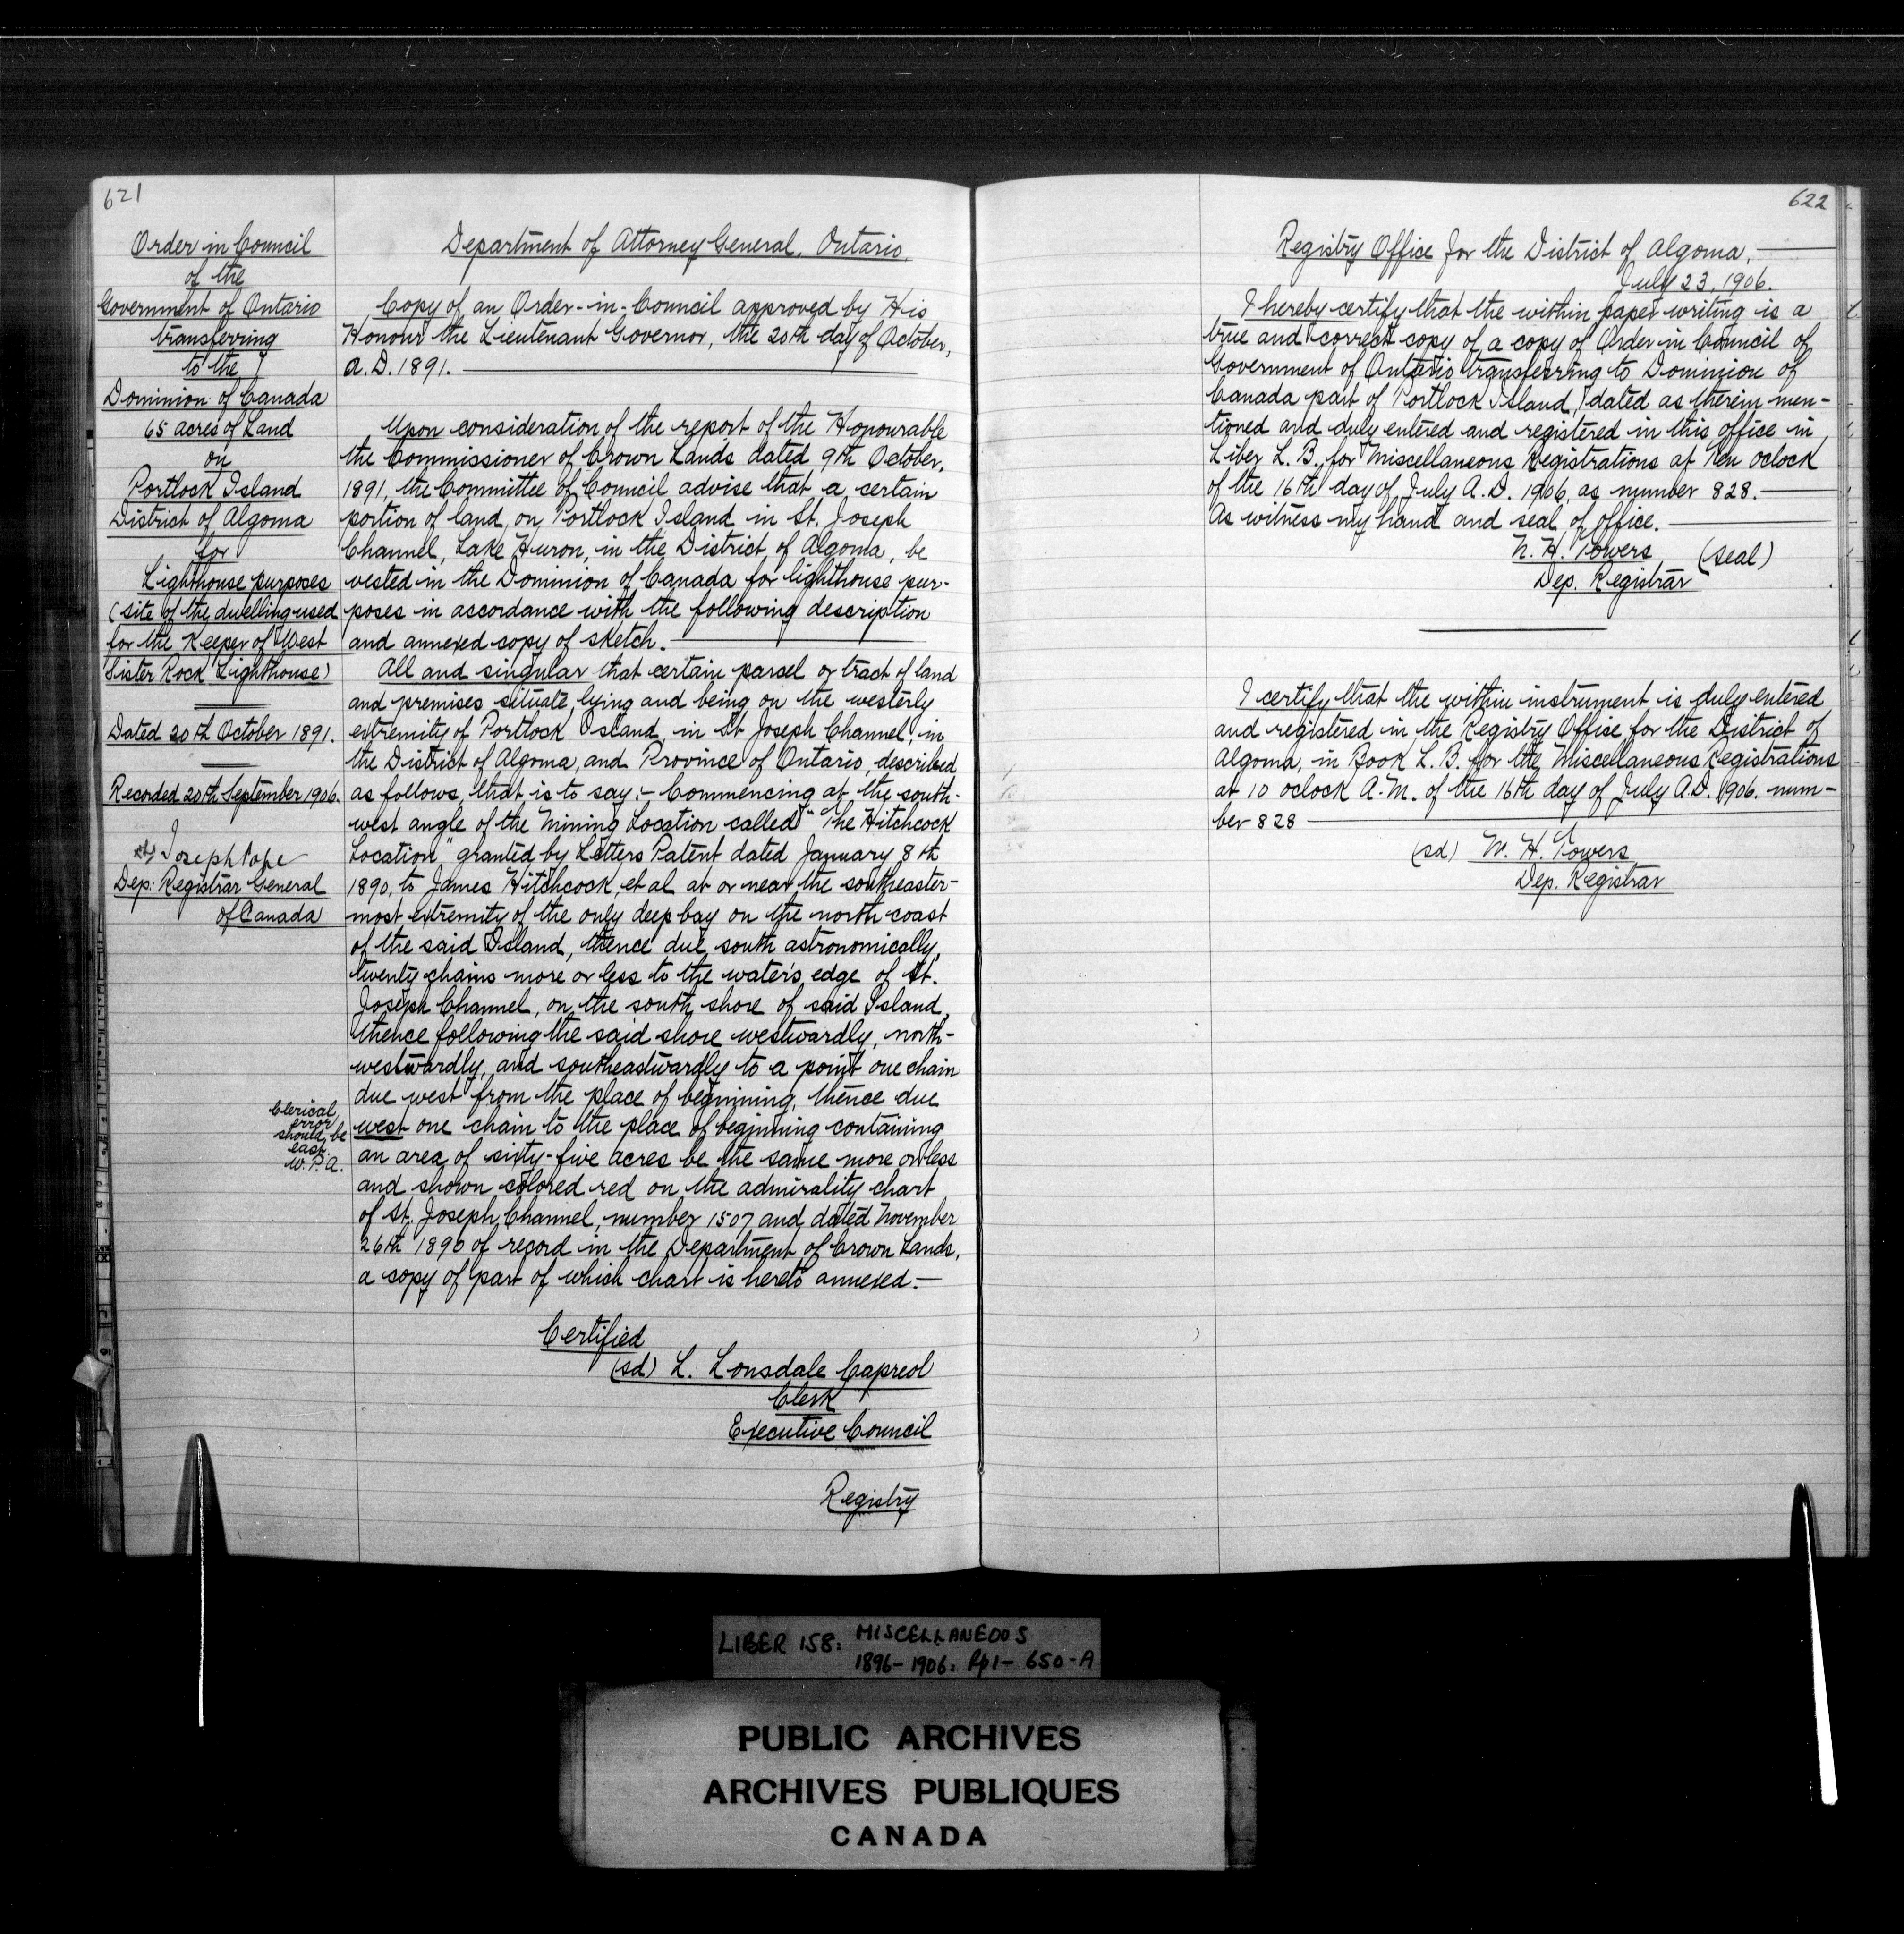 621
Order in Council
of the
Government of Ontario
transferring
to the
Dominion of Canada
65 acres of Land
on
Portlock Island
District of Algoma
for
Lighthouse purposes
(site of the dwelling used
for the Keeper of West
Sister Rock Lighthouse)
Dated 20th October 1891.
Recorded 20th September 1906.
Joseph Pope
Dep: Registrar General
of Canada
Clerical
error
should be
east.
W. P. A.
Department of Attorney General, Ontario.
Copy of an Order-in-Council approved by His
Honour the Lieutenant Governor, the 20th day of October,
A.D. 1891.
Upon consideration of the report of the Honourable
the Commissioner of Crown Lands dated 9th October,
1891, the Committee of Council advise that a certain
portion of land, on Portlock Island in St. Joseph
Channel, Lake Huron, in the District of Algoma, be
vested in the Dominion of Canada for lighthouse pur-
poses in accordance with the following description
and annexed copy of sketch.
All and singular that certain parcel or tract of land
and premises situate, lying and being on the westerly
extremity of Portlock Island in St Joseph Channel, in
the District of Algoma, and Province of Ontario, described
as follows, that is to say:- Commencing at the south-
west angle of the Mining Location called "The Hitchcock
Location" granted by Letters Patent dated January 8th
1890, to James Hitchcock, et al at or near the southeaster-
most extremity of the only deep bay on the north coast
of the said Island, thence due south astronomically,
twenty chains more or less to the water's edge of St.
Joseph Channel, on the south shore of said Island,
thence following the said shore westwardly, north-
westwardly, and southeastwardly to a point one chain
due west from the place of beginning, thence due
west one chain to the place of beginning containing
an area of sixty-five acres be the same more or less
and shown colored red on the admirality chart
of St. Joseph Channel, number 1507 and dated November
26th 1890 of record in the Department of Crown Lands,
a copy of part of which chart is hereto annexed.-
Certified
(sd) L. Lonsdale Capreol
Clerk
Executive Council
Registry
622
Registry Office for the District of Algoma,
July 23, 1906.
I hereby certify that the within paper writing is a
true and correct copy of a copy of Order in Council of
Government of Ontario transferring to Dominion of
Canada part of Portlock Island, dated as therein men-
tioned and duly entered and registered in this office in
Liber L. B. for Miscellaneous Registrations at Ten oclock
of the 16th day of July A.D. 1906, as number 828.
As witness my hand and seal of office.
N. H. Towers (seal)
Dep. Registrar
I certify that the within instrument is duly entered
and registered in the Registry Office for the District of
Algoma, in Book L. B. for the Miscellaneous Registrations
at 10 oclock A.M. of the 16th day of July A.D. 1906. num-
ber 828
(sd) N. H. Towers
Dep. Registrar
LIBER 158: MISCELLANEOUS
1896-1906: Pp 1-650-A
PUBLIC ARCHIVES
ARCHIVES PUBLIQUES
CANADA